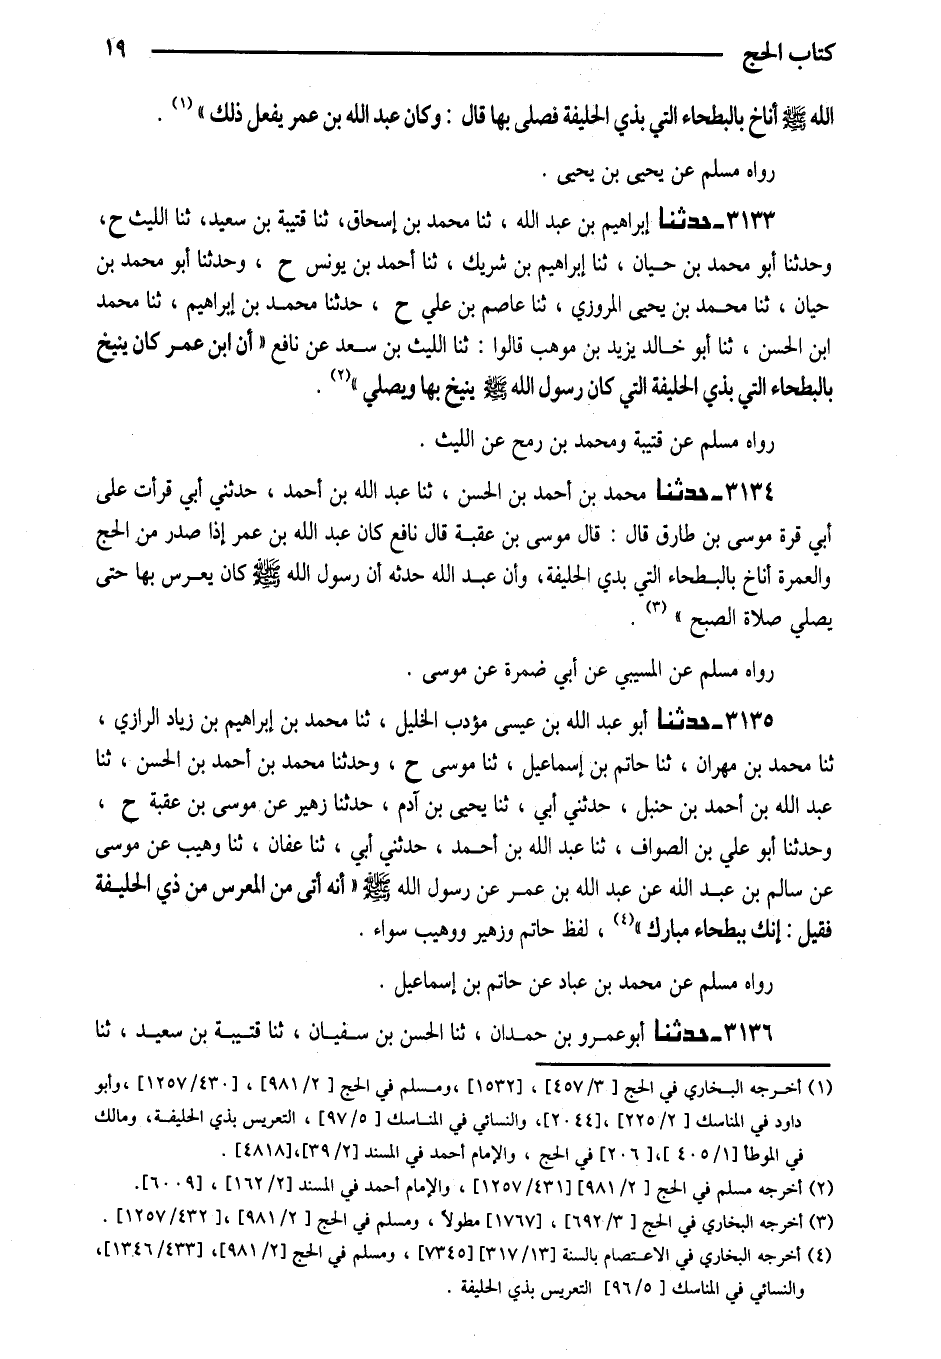 كتاب الحج ١٩
الله ﷺ أناخ بالبطحاء التي بذي الحليفة فصلى بها قال : وكان عبد الله بن عمر يفعل ذلك » (١) .
رواه مسلم عن يحيى بن يحيى .
٣١٣٣ـ حدثنا إبراهيم بن عبد الله ، ثنا محمد بن إسحاق، ثنا قتيبة بن سعيد، ثنا الليث ح،
وحدثنا أبو محمد بن حيان ، ثنا إبراهيم بن شريك ، ثنا أحمد بن يونس ح ، وحدثنا أبو محمد بن
حيان ، ثنا محمد بن يحيى المروزي ، ثنا عاصم بن علي ح ، حدثنا محمد بن إبراهيم ، ثنا محمد
ابن الحسن ، ثنا أبو خالد يزيد بن موهب قالوا : ثنا الليث بن سعد عن نافع « أن ابن عمر كان ينيخ
بالبطحاء التي بذي الحليفة التي كان رسول الله ﷺ ينيخ بها ويصلي »(٢) .
رواه مسلم عن قتيبة ومحمد بن رمح عن الليث .
٣١٣٤ـ حدثنا محمد بن أحمد بن الحسن ، ثنا عبد الله بن أحمد ، حدثني أبي قرأت على
أبي قرة موسى بن طارق قال : قال موسى بن عقبة قال نافع كان عبد الله بن عمر إذا صدر من الحج
والعمرة أناخ بالبطحاء التي بدي الحليفة، وأن عبد الله حدثه أن رسول الله ﷺ كان يعرس بها حتى
يصلي صلاة الصبح » (٣) .
رواه مسلم عن المسيبي عن أبي ضمرة عن موسى .
٣١٣٥ـ حدثنا أبو عبد الله بن عيسى مؤدب الخليل ، ثنا محمد بن إبراهيم بن زياد الرازي ،
ثنا محمد بن مهران ، ثنا حاتم بن إسماعيل ، ثنا موسى ح ، وحدثنا محمد بن أحمد بن الحسن ، ثنا
عبد الله بن أحمد بن حنبل ، حدثني أبي ، ثنا يحيى بن آدم ، حدثنا زهير عن موسى بن عقبة ح ،
وحدثنا أبو علي بن الصواف ، ثنا عبد الله بن أحمد ، حدثني أبي ، ثنا عفان ، ثنا وهيب عن موسى
عن سالم بن عبد الله عن عبد الله بن عمر عن رسول الله ﷺ « أنه أتى من المعرس من ذي الحليفة
فقيل : إنك ببطحاء مبارك »(٤) ، لفظ حاتم وزهير ووهيب سواء .
رواه مسلم عن محمد بن عباد عن حاتم بن إسماعيل .
٣١٣٦ـ حدثنا أبوعمرو بن حمدان ، ثنا الحسن بن سفيان ، ثنا قتيبة بن سعيد ، ثنا
(١) أخرجه البخاري في الحج [ ٤٥٧/٣] ، [١٥٣٢] ،ومسلم في الحج [ ٩٨١/٢] ، [١٢٥٧/٤٣٠] ،وأبو
داود في المناسك [ ٢٢٥/٢] ،[٢٠٤٤]، والنسائي في المناسك [ ٩٧/٥] ، التعريس بذي الحليفة، ومالك
في الموطأ [٤٠٥/١ ]،[ ٢٠٦] في الحج ، والإمام أحمد في المسند [٣٩/٢]،[٤٨١٨] .
(٢) أخرجه مسلم في الحج [ ٩٨١/٢] [١٢٥٧/٤٣١] ، والإمام أحمد في المسند [١٦٢/٢] ، [٦٠٠٩].
(٣) أخرجه البخاري في الحج [ ٦٩٢/٣] ، [١٧٦٧] مطولاً ، ومسلم في الحج [ ٩٨١/٢] ،[ ١٢٥٧/٤٣٢] .
(٤) أخرجه البخاري في الاعتصام بالسنة [٣١٧/١٣] [٧٣٤٥] ، ومسلم في الحج [٩٨١/٢]، [١٣٤٦/٤٣٣]،
والنسائي في المناسك [ ٩٦/٥] التعريس بذي الحليفة .